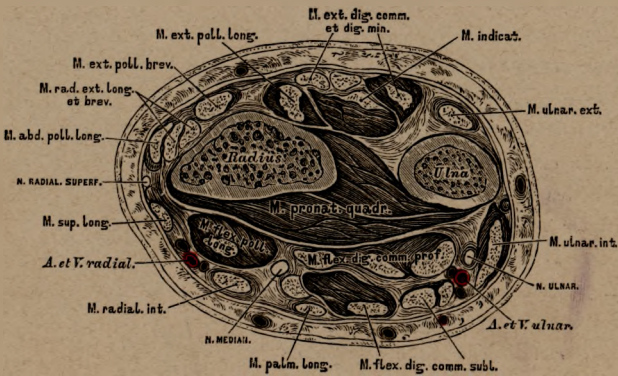 M. ext. dig. comm.
et dig. min.
M. ext. poll. long.
M. indicat.
M. ext. poll. brev.
M. rad. ext. long.
et brev.
M. ulnar. ext.
M. abd. poll. long.
Radius.
Ulna
N. RADIAL. SUPERF.
M. pronat. quadr.
M. sup. long.
M. flex. poll.
long.
M. ulnar. int.
A. et V. radial.
M. flex. dig. comm. prof.
N. ULNAR.
M. radial. int.
A. et V. ulnar.
N. MEDIAN.
M. palm. long.
M. flex. dig. comm. subl.